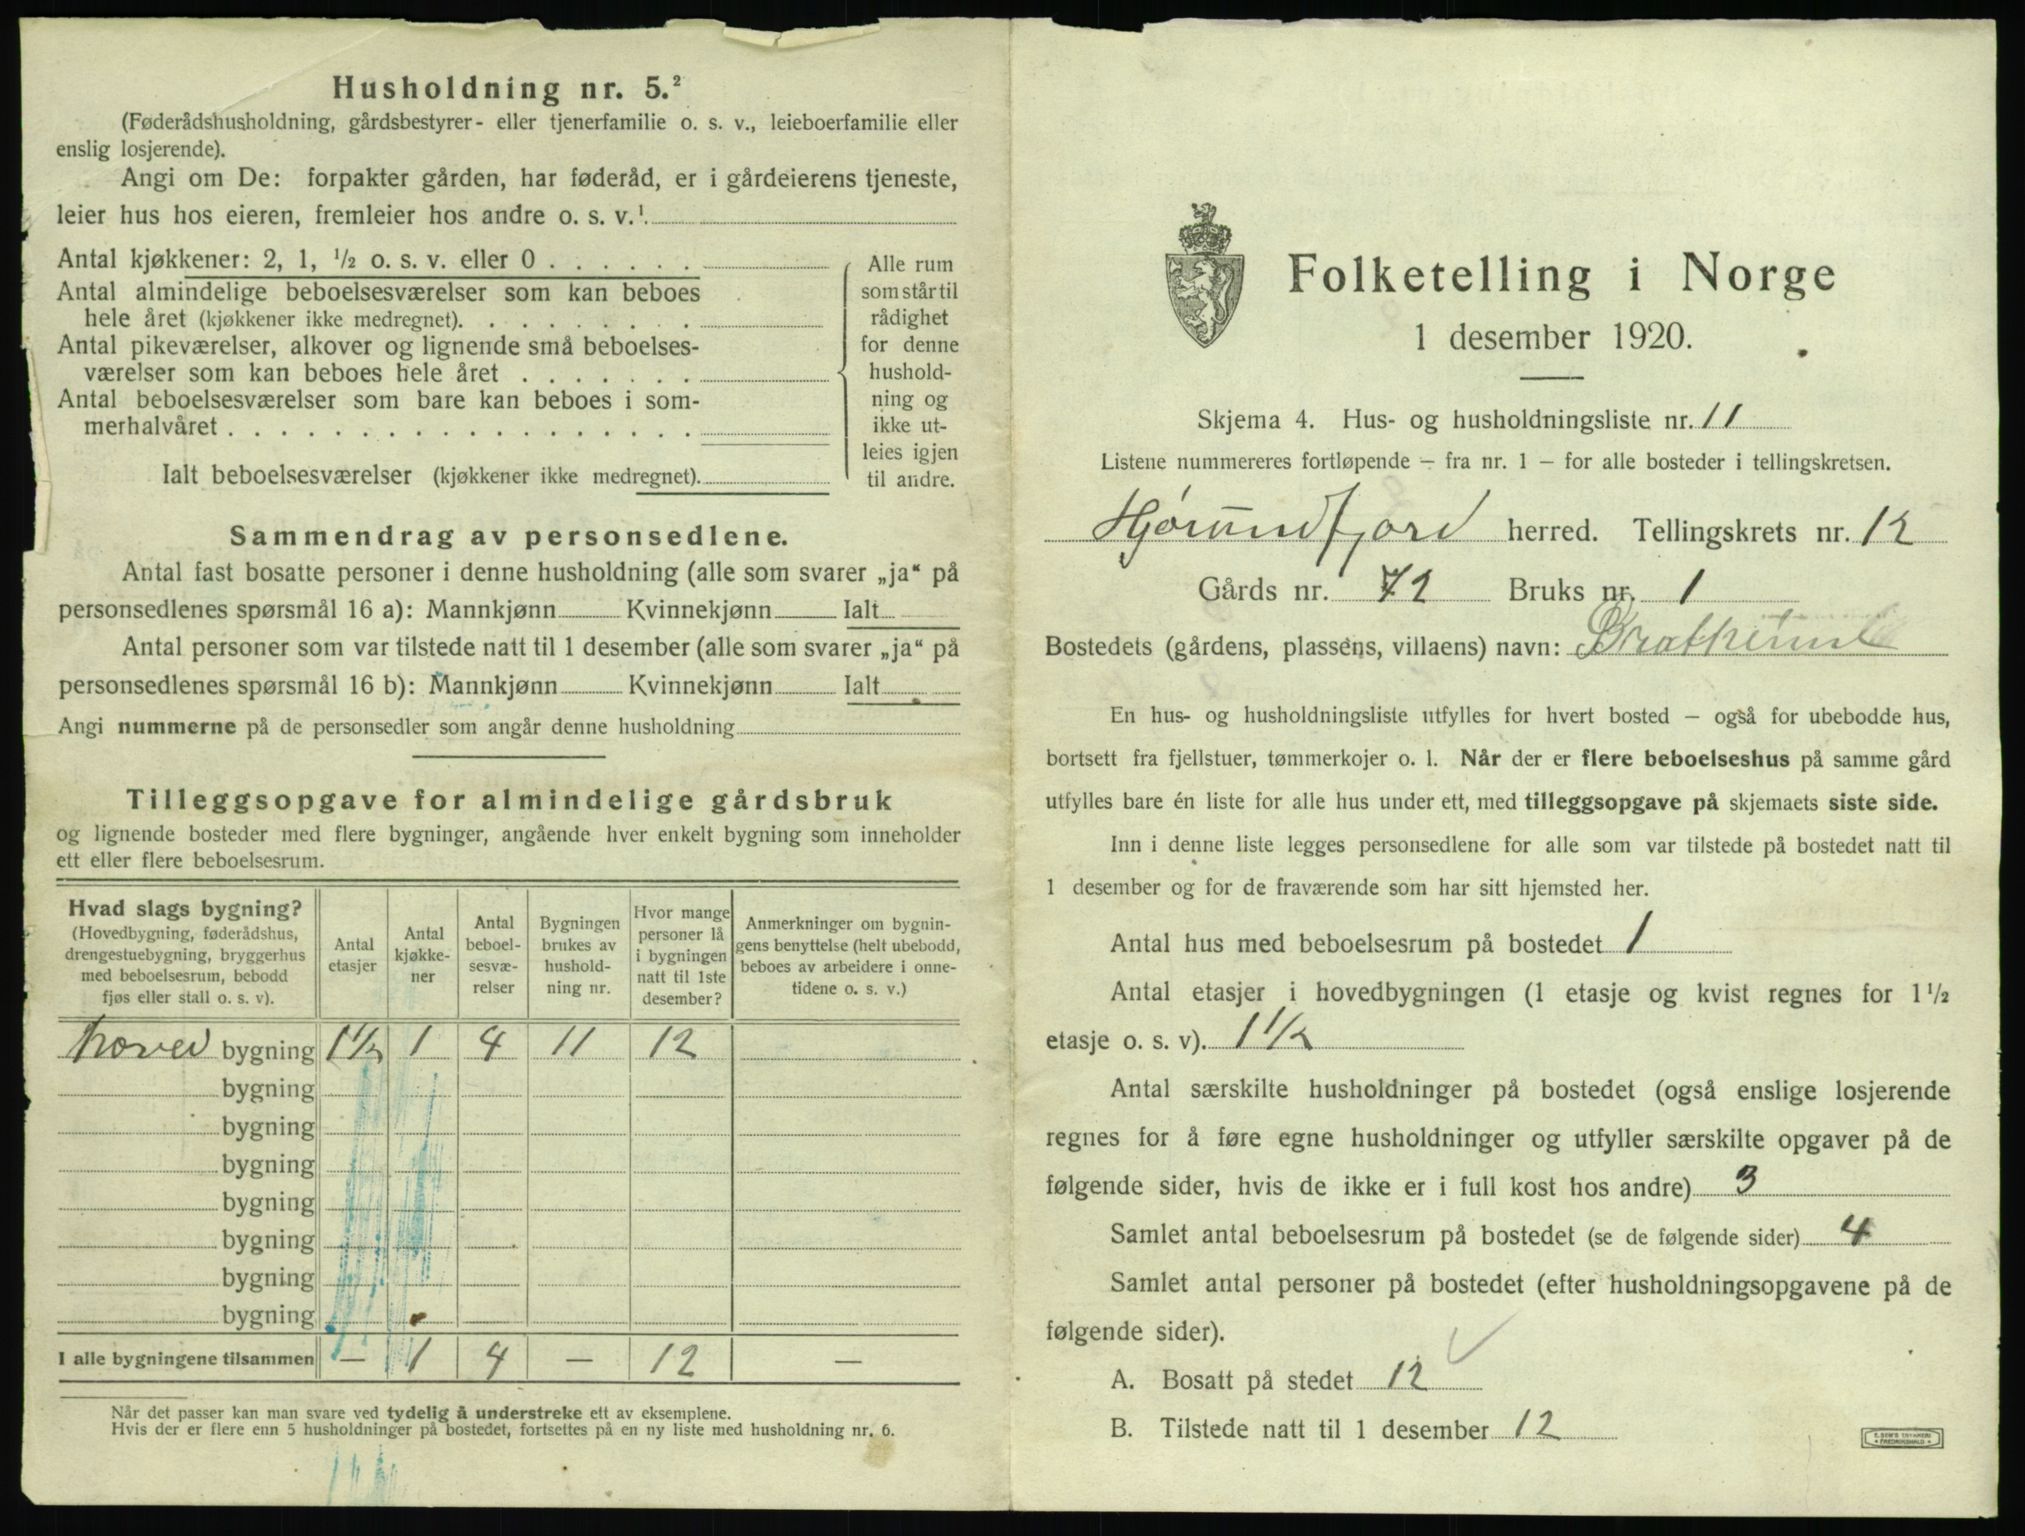 Husholdning nr. 5.²
(Føderådshusholdning, gårdsbestyrer- eller tjenerfamilie o. s. v., leieboerfamilie eller
enslig losjerende).
Angi om De: forpakter gården, har føderåd, er i gårdeierens tjeneste,
leier hus hos eieren, fremleier hos andre o. s. v.¹
Antal kjøkkener: 2, 1, ½ o. s. v. eller 0 . . . . . .
Antal almindelige beboelsesværelser som kan beboes
hele året (kjøkkener ikke medregnet). . . . . . . . . .
Antal pikeværelser, alkover og lignende små beboelses-
værelser som kan beboes hele året . . . . . . .
Antal beboelsesværelser som bare kan beboes i som-
merhalvåret . . . . . . . . . . . . . . . . . .
Ialt beboelsesværelser (kjøkkener ikke medregnet).
Alle rum
som står til
rådighet
for denne
hushold-
ning og
ikke ut-
leies igjen
til andre.
Sammendrag av personsedlene.
Antal fast bosatte personer i denne husholdning (alle som svarer „ja“ på
personsedlenes spørsmål 16 a): Mannkjønn Kvinnekjønn Ialt
Antal personer som var tilstede natt til 1 desember (alle som svarer „ja“ på
personsedlenes spørsmål 16 b): Mannkjønn Kvinnekjønn Ialt
Angi nummerne på de personsedler som angår denne husholdning
Tilleggsopgave for almindelige gårdsbruk
og lignende bosteder med flere bygninger, angående hver enkelt bygning som inneholder
ett eller flere beboelsesrum.
Hvad slags bygning?
(Hovedbygning, føderådshus,
drengestuebygning, bryggerhus
med beboelsesrum, bebodd
fjøs eller stall o. s. v).
Antal
etasjer
Antal
kjøkke-
ner
Antal
beboel-
sesvæ-
relser
Bygningen
brukes av
hushold-
ning nr.
Hvor mange
personer lå
i bygningen
natt til 1ste
desember?
Anmerkninger om bygnin-
gens benyttelse (helt ubebodd,
beboes av arbeidere i onne-
tidene o. s. v.)
hoved bygning 1½ 1 4 11 12
bygning
bygning
bygning
bygning
bygning
bygning
bygning
I alle bygningene tilsammen — 1 4 — 12 —
Når det passer kan man svare ved tydelig å understreke ett av eksemplene.
Hvis der er flere enn 5 husholdninger på bostedet, fortsettes på en ny liste med husholdning nr. 6.
Folketelling i Norge
1 desember 1920.
Skjema 4. Hus- og husholdningsliste nr. 11
Listene nummereres fortløpende – fra nr. 1 – for alle bosteder i tellingskretsen.
Hjørundfjord herred. Tellingskrets nr. 12
Gårds nr. 72 Bruks nr. 1
Bostedets (gårdens, plassens, villaens) navn:
En hus- og husholdningsliste utfylles for hvert bosted – også for ubebodde hus,
bortsett fra fjellstuer, tømmerkojer o. l. Når der er flere beboelseshus på samme gård
utfylles bare én liste for alle hus under ett, med tilleggsopgave på skjemaets siste side.
Inn i denne liste legges personsedlene for alle som var tilstede på bostedet natt til
1 desember og for de fraværende som har sitt hjemsted her.
Antal hus med beboelsesrum på bostedet 1
Antal etasjer i hovedbygningen (1 etasje og kvist regnes for 1½
etasje o. s. v). 1½
Antal særskilte husholdninger på bostedet (også enslige losjerende
regnes for å føre egne husholdninger og utfyller særskilte opgaver på de
følgende sider, hvis de ikke er i full kost hos andre) 3
Samlet antal beboelsesrum på bostedet (se de følgende sider) 4
Samlet antal personer på bostedet (efter husholdningsopgavene på de
følgende sider).
A. Bosatt på stedet 12
B. Tilstede natt til 1 desember 12